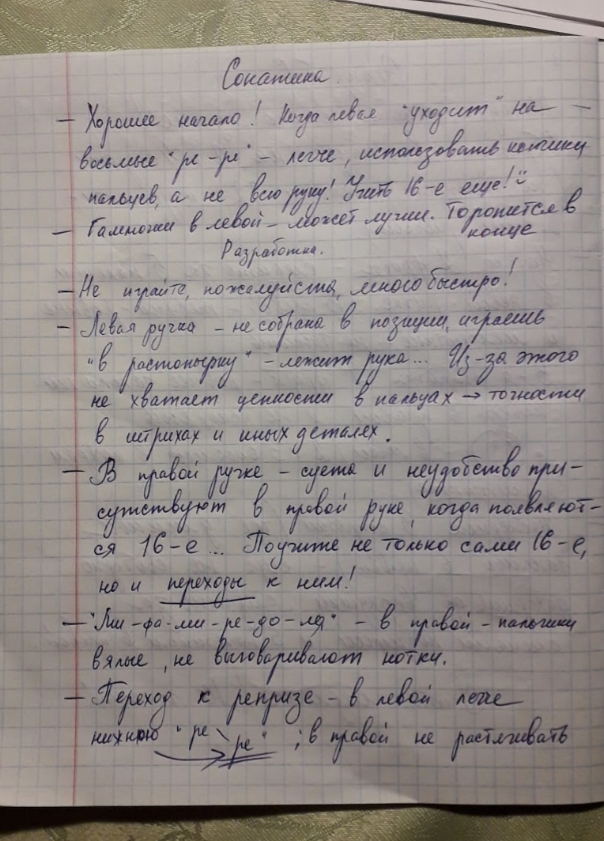 Сонатина.
— Хорошее начало! Когда левая "уходит" на —
восьмые "ре-ре" – легче, использовать кончики
пальцев, а не всю руку! Учить 16-е еще!
— Гаммочки в левой – может лучш. Торопится в
конце
Разработка.
— Не играйте, пожалуйста, много быстро!
— Левая ручка – не собрана в позиции, играешь
"в растопырку" – лежит рука... Из-за этого
не хватает цепкости в пальцах → точности
в штрихах и иных деталях.
— В правой ручке – суета и неудобство при-
сутствуют в правой руке, когда появляют-
ся 16-е... Поучите не только сами 16-е,
но и переходы к ним!
— "Ми-фа-ми-ре-до-ля" – в правой – пальчики
вялые, не выговаривают нотки.
— Переход к репризе – в левой легче
нижнюю "ре ре"; в правой не растягивать